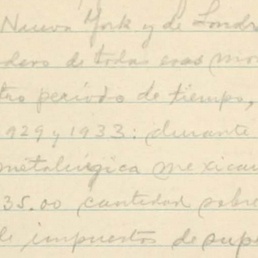 Nueva York y de Londr
dero de todas esas mo
tro período de tiempo,
1929 y 1933: durante
metalúrgica mexican
35.00 cantidad sobre
de impuestos de supe